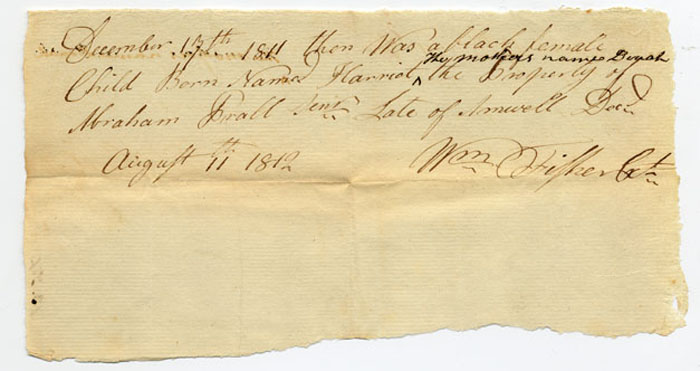 December 13th 1811 then Was a black female
Child Born Named Harriot ^ thy mothers name Dinah the Property of
Abraham Prall Senr Late of Amwell Decd
August 11th 1812 Wm Fisher